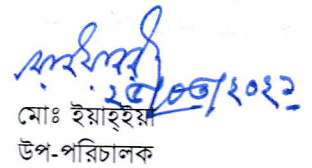 ২৫/০৩/২০২১
মোঃ ইয়াহ্ইয়া
উপ-পরিচালক